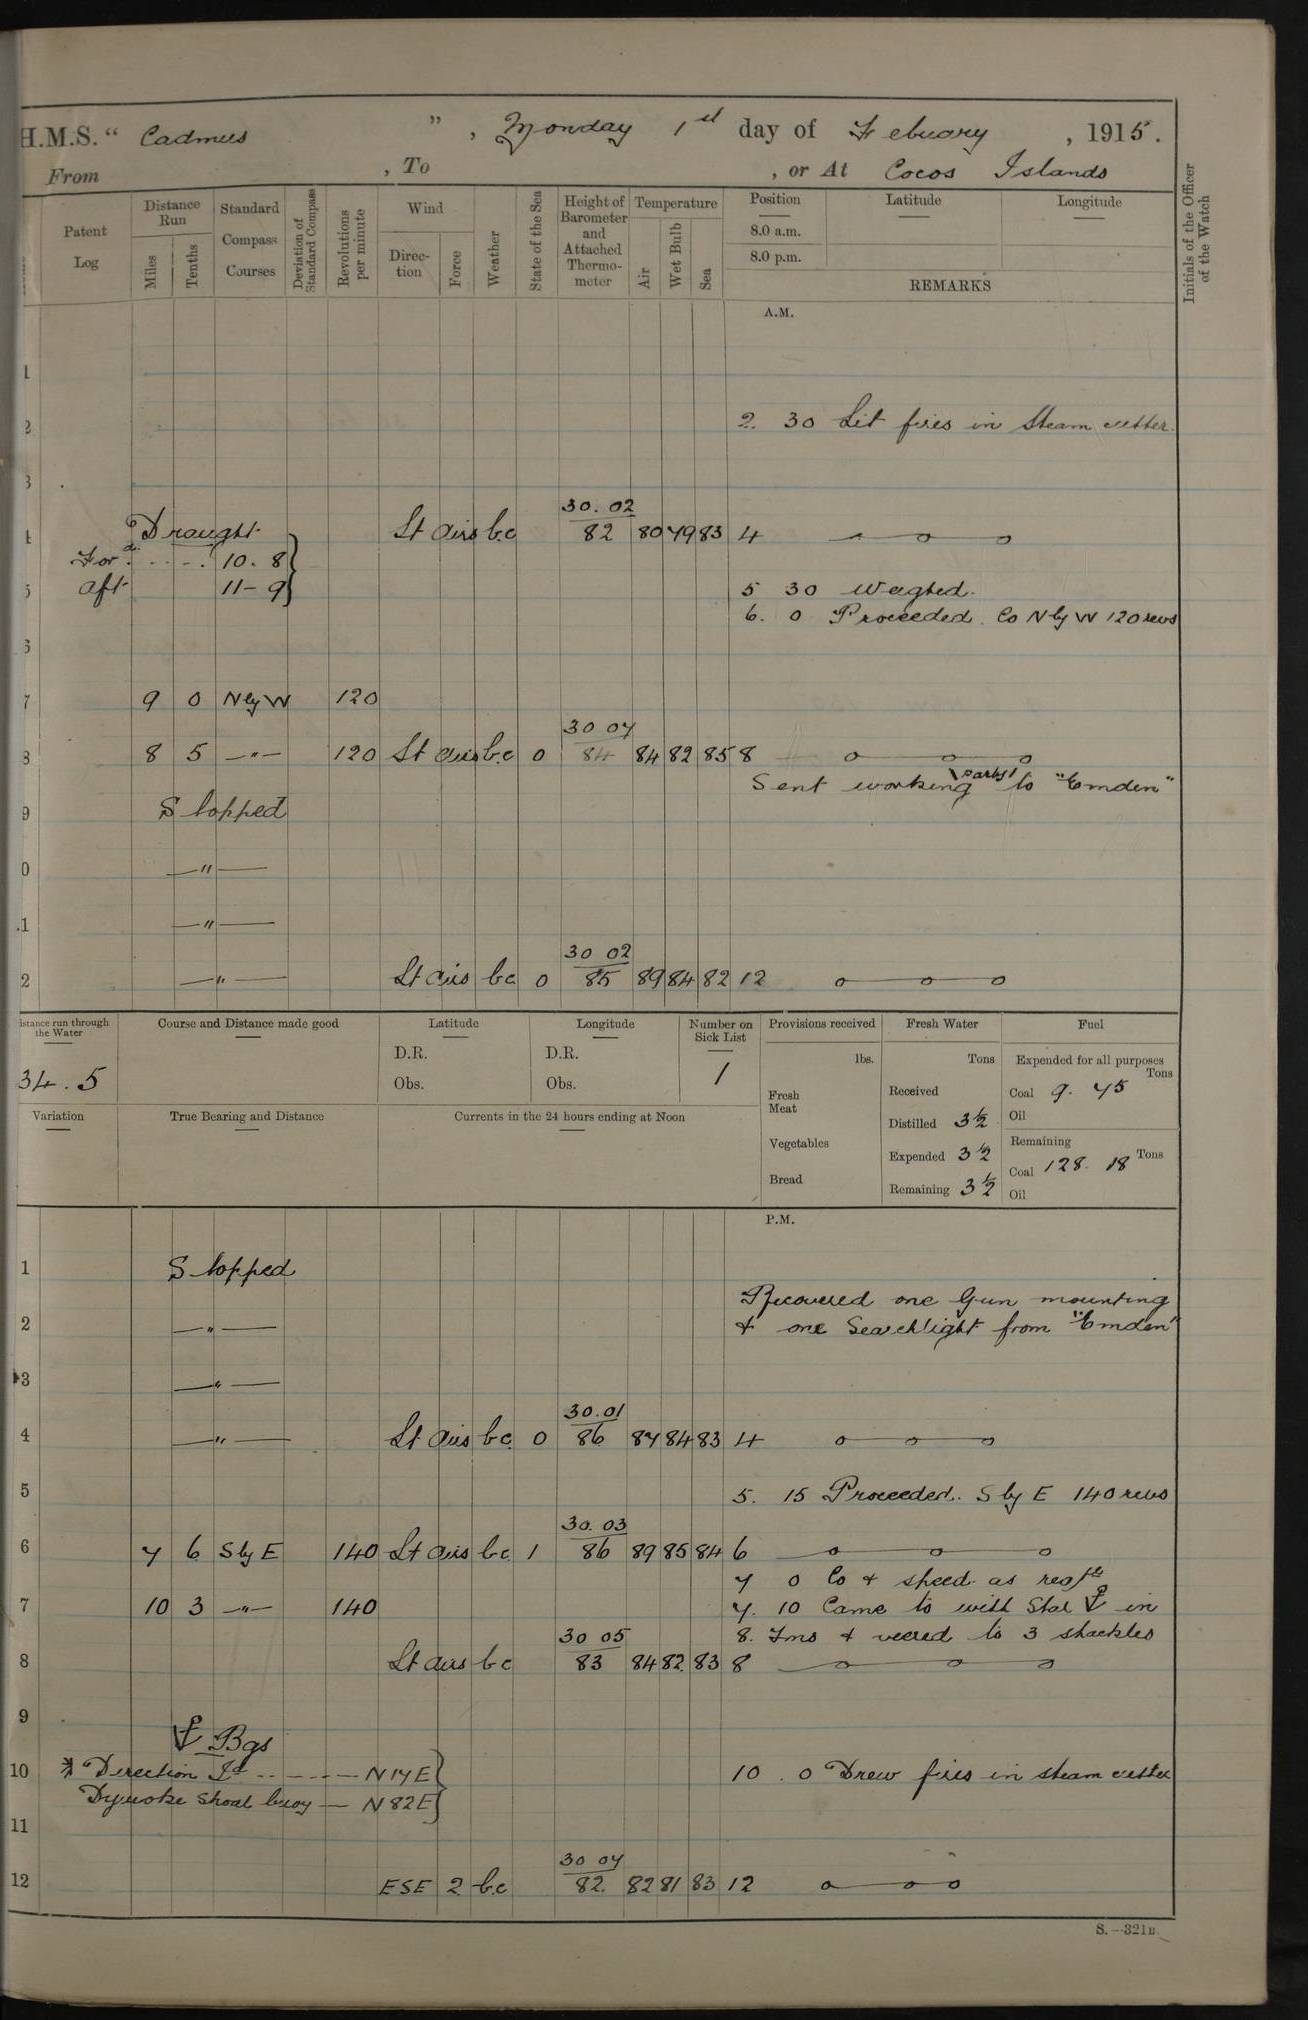 H.M.S. “ Cadmus ” , Monday 1st day of Febuary , 1915.
From , To , or At Cocos Islands
Patent Log
Distance Run
Miles
Tenths
Standard Compass Courses
Deviation of Standard Compass
Revolutions per minute
Wind
Direction
Force
Weather
State of the Sea
Height of Barometer and Attached Thermometer
Temperature
Air
Wet Bulb
Sea
Position
8.0 a.m.
8.0 p.m.
Latitude
Longitude
REMARKS
Initials of the Officer of the Watch
A.M.
1
2 2. 30 Lit fires in Steam cutter.
3
30.02
4 Draught Lt airs b.c 82 80 79 83 4
For'd 10.8
5 aft 11-9 5 30 Weighed.
6. 0 Proceeded. Co N by W 120 revs
6
7 9 0 N by W 120
30 07
8 8 5 —"— 120 Lt airs b.c 0 84 84 82 85 8
Sent working party to "Emden"
9 Stopped
0 —"—
1 —"—
30 02
2 —"— Lt airs bc 0 85 89 84 82 12
Distance run through the Water
34.5
Course and Distance made good
Latitude
D.R.
Obs.
Longitude
D.R.
Obs.
Number on Sick List
1
Provisions received
lbs.
Fresh Meat
Vegetables
Bread
Fresh Water
Tons
Received
Distilled 3½
Expended 3½
Remaining 3½
Fuel
Expended for all purposes
Tons
Coal 9. 75
Oil
Remaining
Tons
Coal 128. 18
Oil
Variation
True Bearing and Distance
Currents in the 24 hours ending at Noon
P.M.
1 Stopped
Recovered one Gun mounting
2 —"— & one Searchlight from "Emden"
3 —"—
30.01
4 —"— Lt airs bc 0 86 87 84 83 4
5 5. 15 Proceeded. S by E 140 revs
30.03
6 7 6 S by E 140 Lt airs bc 1 86 89 85 84 6
7 0 Co & speed as req
7 10 3 —"— 140 7. 10 Came to with Star ⚓ in
30 05 8. fms & veered to 3 shackles
8 Lt airs bc 83 84 82 83 8
9
⚓ Bgs
10 * Direction Id N 17 E 10. 0 Drew fires in steam cutter
shoal buoy — N 82 E
11
30 07
12 ESE 2 b.c 82. 82 81 83 12
S.—321B.